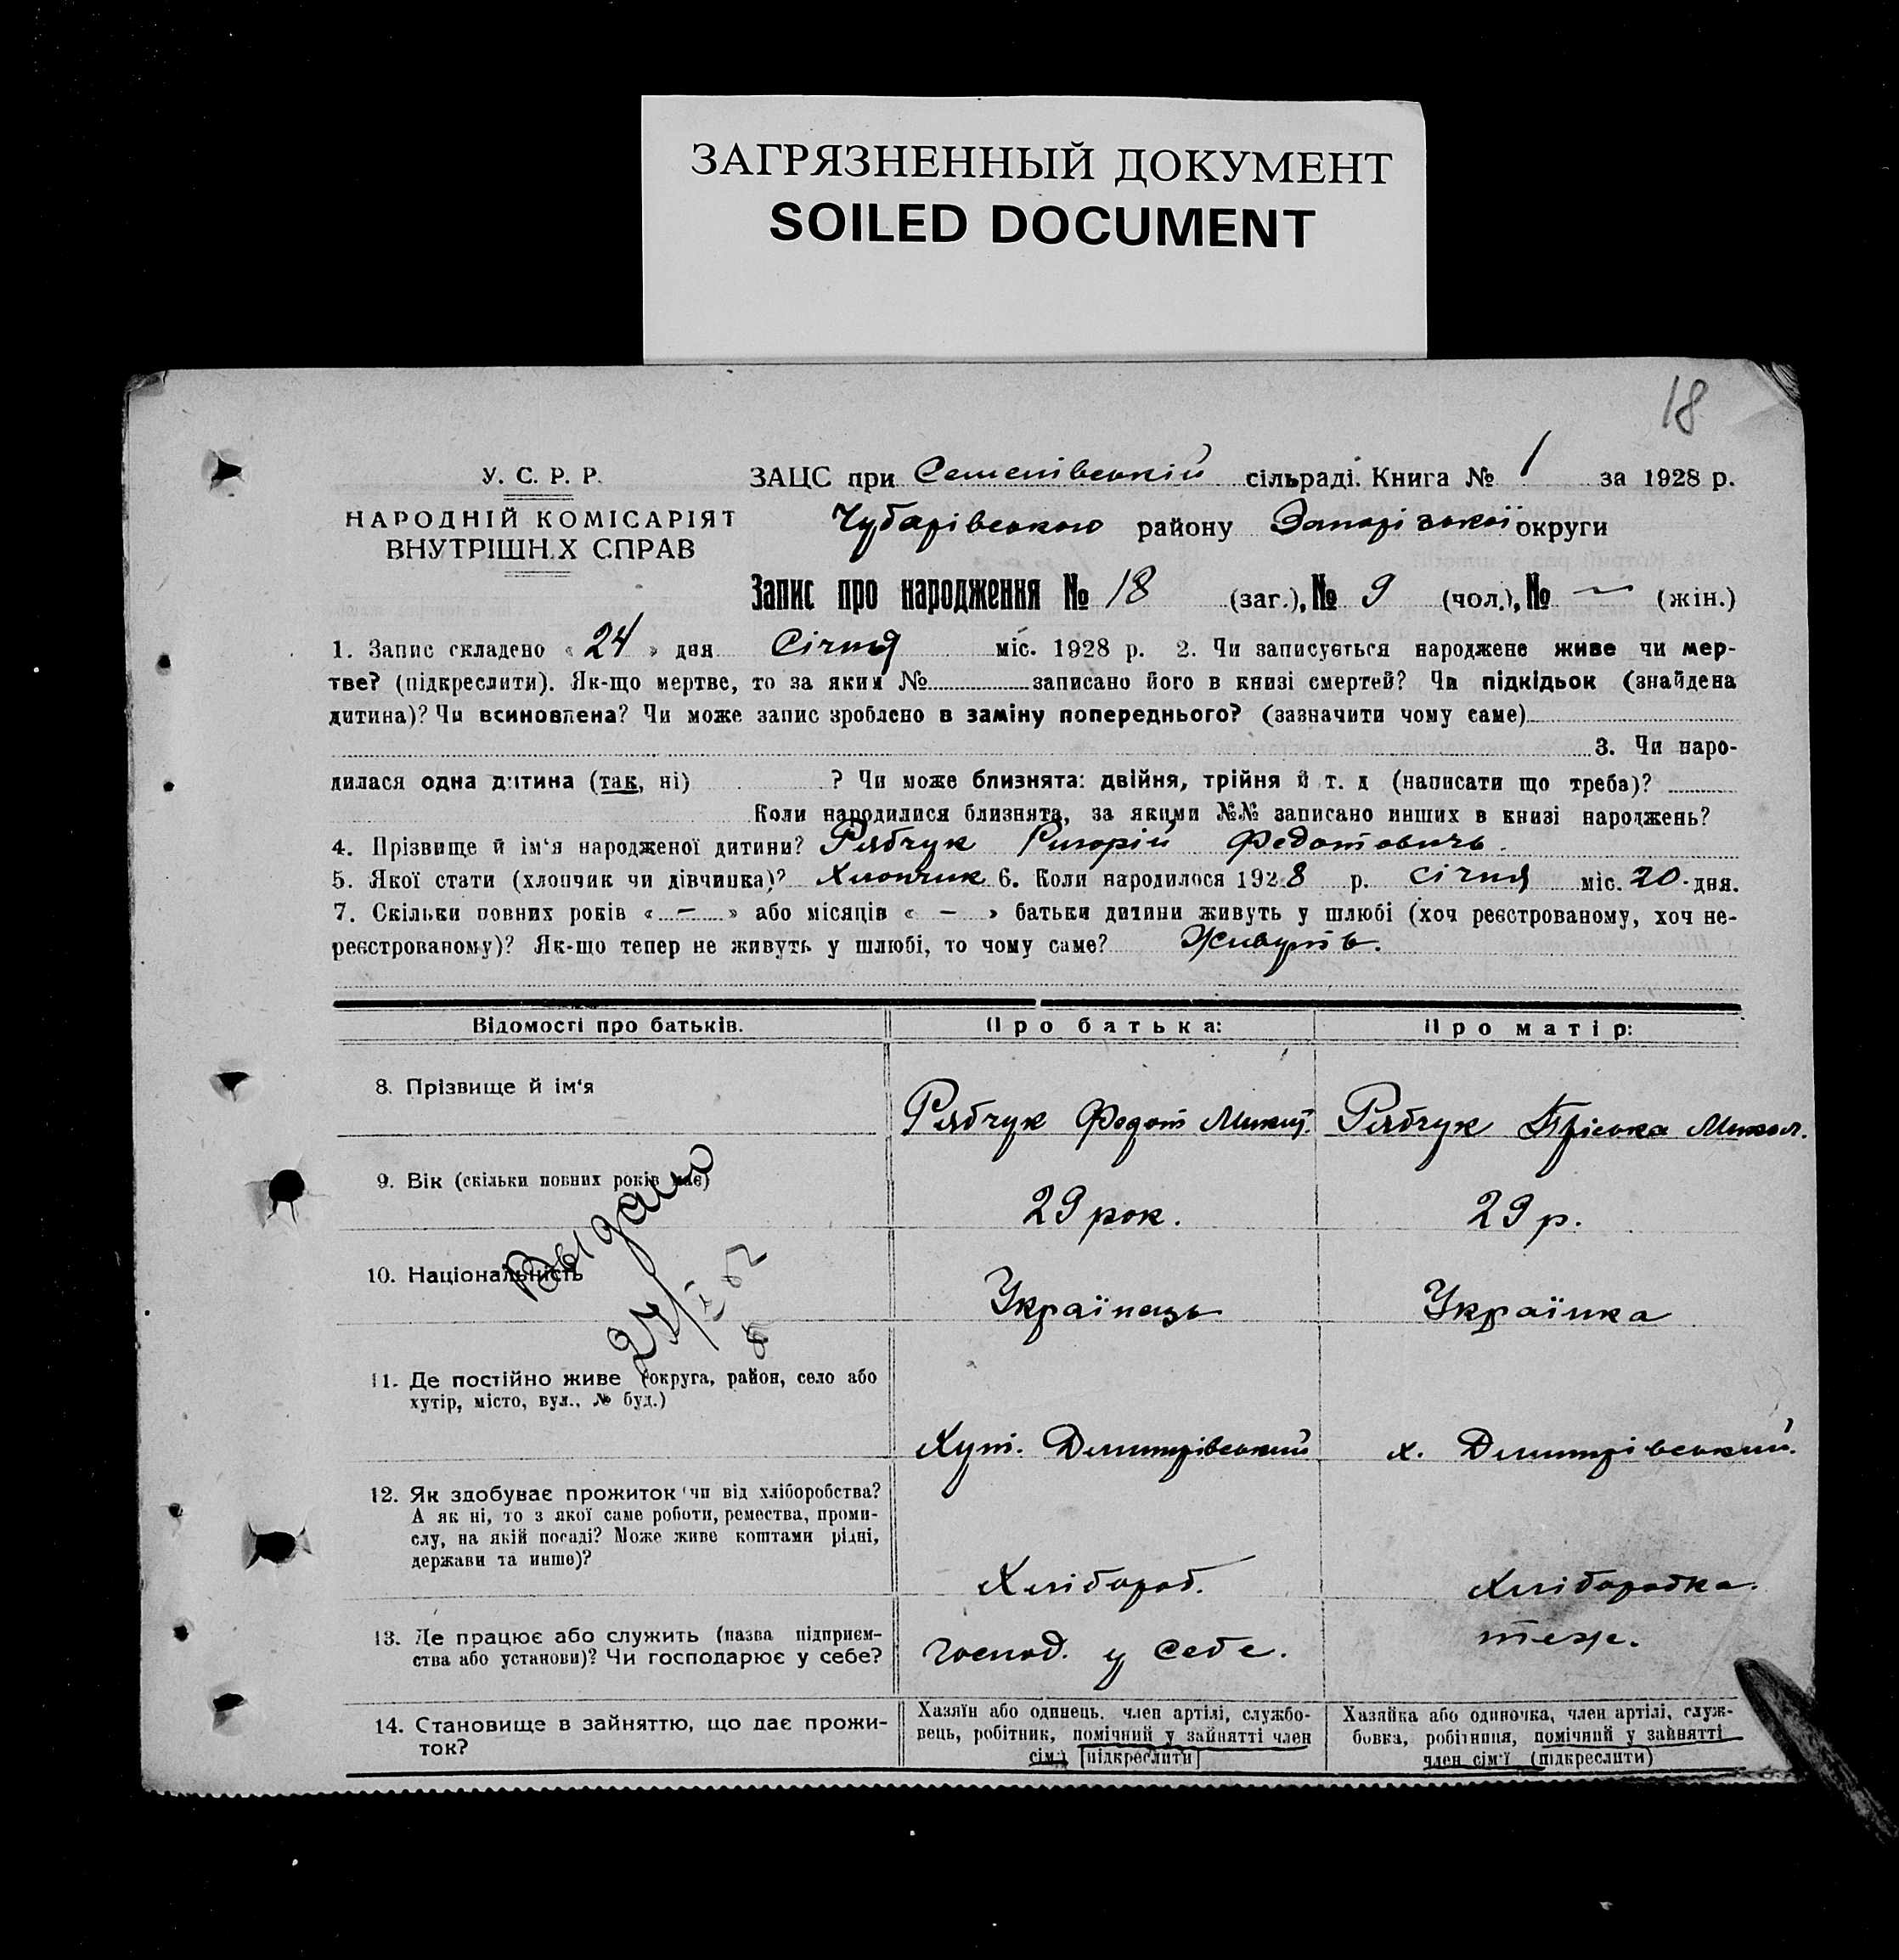 ЗАГРЯЗНЕННЫЙ ДОКУМЕНТ
SOILED DOCUMENT
18
У. С. Р. Р.
НАРОДНІЙ КОМІСАРІЯТ
ВНУТРІШН.Х СПРАВ
ЗАЦС при Семенівській сільраді. Книга № 1 за 1928 р.
Чубарівського району Запорізької округи
Запис про народження № 18 (заг.), № 9 (чол.), № — (жін.)
1. Запис складено « 24 » дня Січня міс. 1928 р. 2. Чи записується народжене живе чи мер-
тве? (підкреслити). Як-що мертве, то за яким № записано його в книзі смертей? Чи підкідьок (знайдена
дитина)? Чи всиновлена? Чи може запис зроблено в заміну попереднього? (зазначити чому саме)
3. Чи наро-
дилася одна дитина (так, ні) ? Чи може близнята: двійня, трійня й т. д (написати що треба)?
Коли народилися близнята, за якими №№ записано инших в книзі народжень?
4. Прізвище й ім‘я народженої дитини? Рябчук Григорій Федотовичь.
5. Якої стати (хлопчик чи дівчинка)? Хлопчик 6. Коли народилося 1928 р. січня міс. 20 дня.
7. Скільки повних років « — » або місяців « — » батьки дитини живуть у шлюбі (хоч реєстрованому, хоч не-
реєстрованому)? Як-що тепер не живуть у шлюбі, то чому саме? Живуть.
Відомості про батьків. Про батька: Про матір:
8. Прізвище й ім‘я
Рябчук Федот Микит. Рябчук Пріська Микол.
9. Вік (скільки повних років має)
29 рок. 29 р.
Выдано
10. Національність
Українець Українка
11. Де постійно живе (округа, район, село або
хутір, місто, вул., № буд.)
Хут. Димитрівський х. Димитрівський.
12. Як здобуває прожиток чи від хліборобства?
А як ні, то з якої саме роботи, ремества, проми-
слу, на якій посаді? Може живе коштами рідні,
держави та инше)?
Хлібороб. Хліборобка.
13. Де працює або служить (назва підприєм-
ства або установи)? Чи господарює у себе?
господ. у себе. теж.
14. Становище в зайняттю, що дає прожи-
ток?
Хазяїн або одинець. член артілі, службо-
вець, робітник, помічний у зайнятті член
сім'ї (підкреслити)
Хазяйка або одиночка, член артілі, служ-
бовка, робітниця, помічний у зайнятті
член сім'ї (підкреслити)